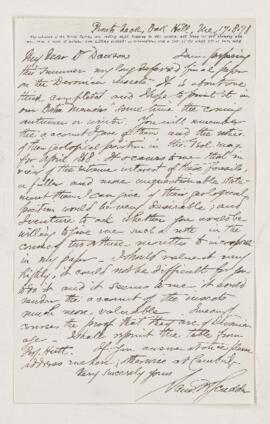 My Dear Dr Dawson I am preparing
this summer my long deferred paper
on the Devonian insects. It is about one
third completed and I hope to print it in
some time the coming
autumn or winter. You will remember
the account I gave of them and the notice
of their Geological position in the Geol. Mag.
for April 1868. It occurs to me that in
view of the extreme interest of these fossils,
a fuller and more unquestionable state-
ment than I can give of their geological
position would be very desirable; and I
venture to ask whether you would be
willing to give me such a note in the
course of two or three months to incorporate
in my paper. I should value it very
highly, it could not be difficult for you
to do it and it seems to me it would
render the account of the insects
much more valuable. I mean of
course the proof that they are of Devonian
age. I shall reprint the table from
Prof. Hartt. If you
address me here; otherwise at Cambridge
Very sincerely yours
Sam. H. Scudder